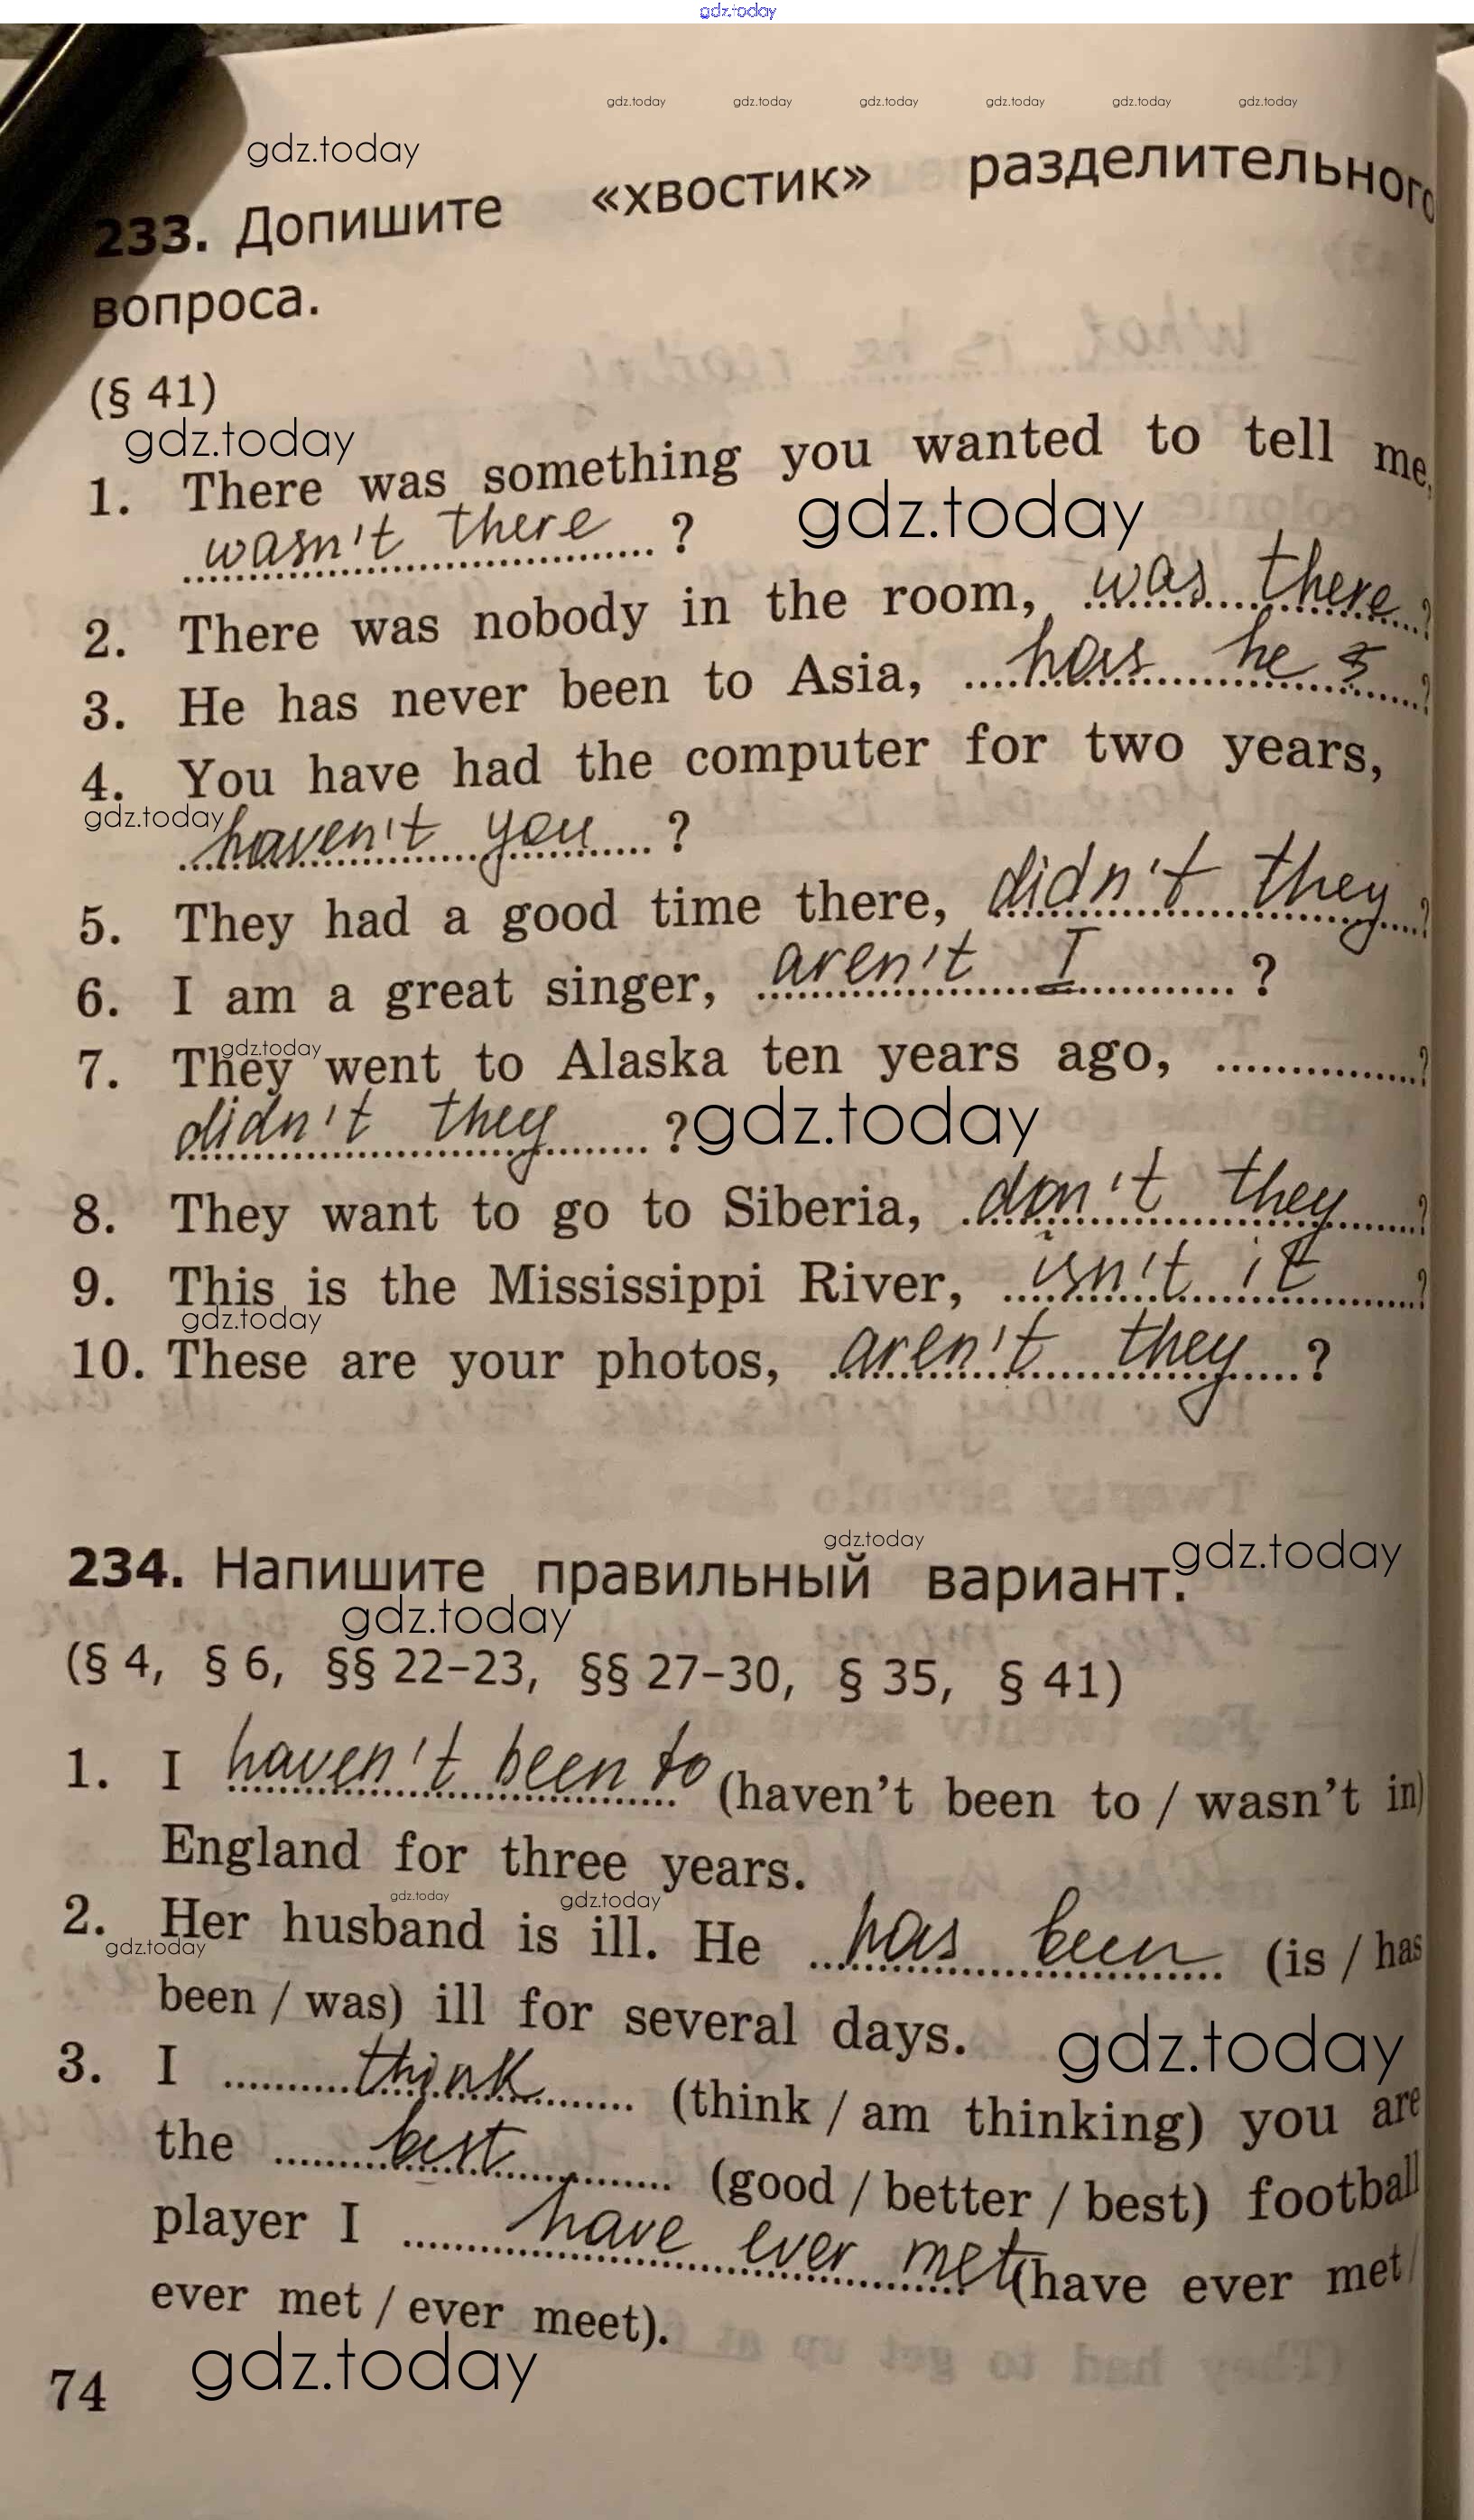 gdz.today
gdz.today gdz.today gdz.today gdz.today gdz.today gdz.today
gdz.today
233. Допишите «хвостик» разделительного
вопроса.
(§ 41)
gdz.today
1. There was something you wanted to tell me,
wasn't there ?
gdz.today
2. There was nobody in the room, was there ?
3. He has never been to Asia, has he ?
4. You have had the computer for two years,
gdz.today
haven't you ?
5. They had a good time there, didn't they ?
6. I am a great singer, aren't I ?
gdz.today
7. They went to Alaska ten years ago, ?
didn't they ?
gdz.today
8. They want to go to Siberia, don't they ?
9. This is the Mississippi River, isn't it ?
gdz.today
10. These are your photos, aren't they ?
gdz.today
gdz.today
234. Напишите правильный вариант.
gdz.today
(§ 4, § 6, §§ 22–23, §§ 27–30, § 35, § 41)
1. I haven't been to (haven't been to / wasn't in)
England for three years.
gdz.today gdz.today
2. Her husband is ill. He has been (is / has
gdz.today
been / was) ill for several days.
gdz.today
3. I think (think / am thinking) you are
the best (good / better / best) football
player I have ever met (have ever met /
ever met / ever meet).
gdz.today
74